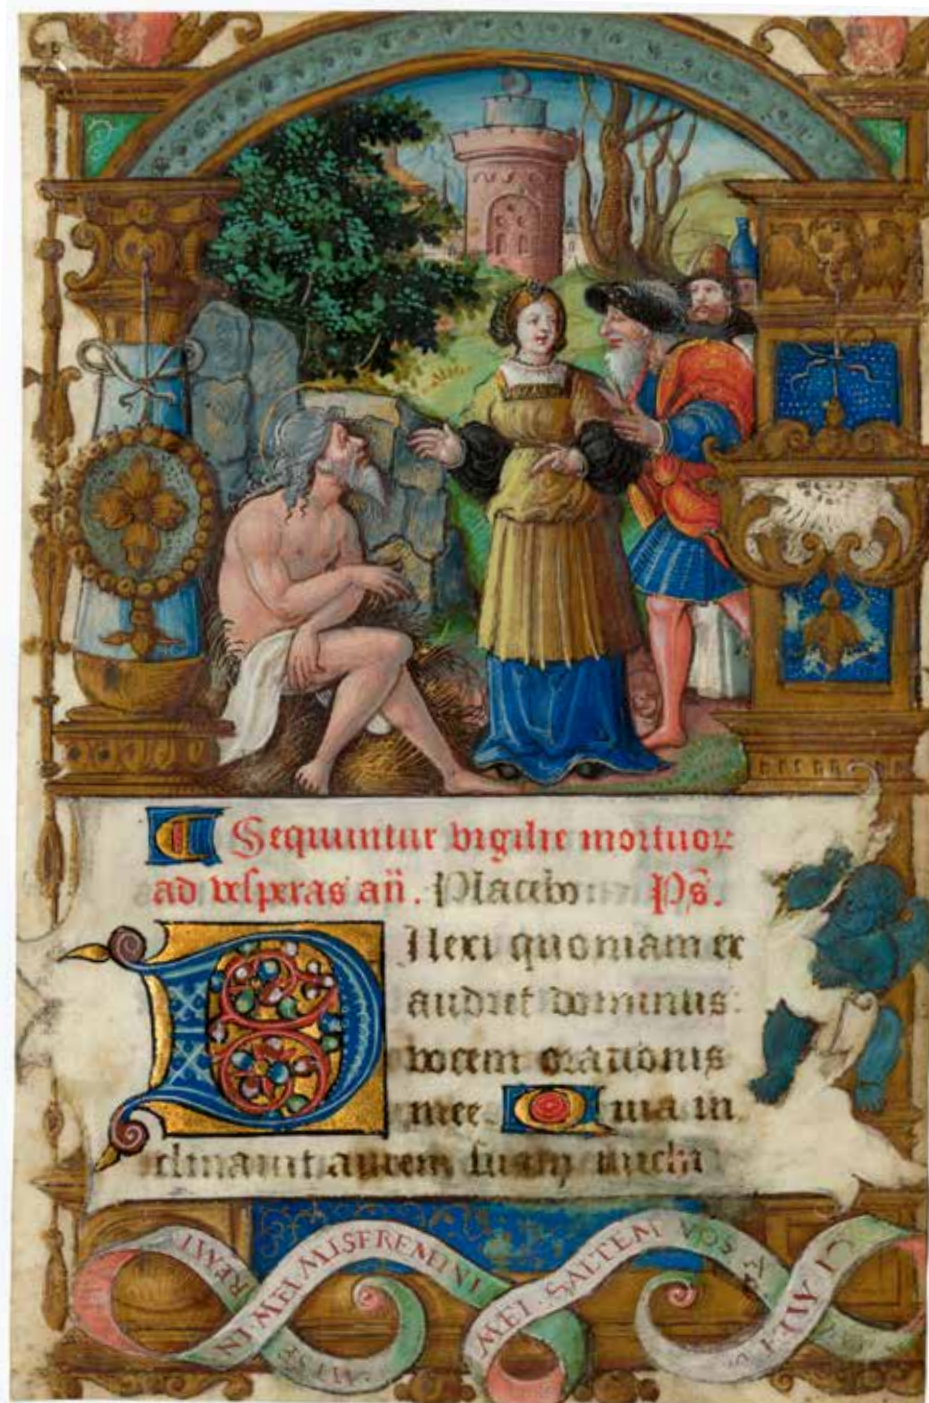 Sequuntur vigilie mortuor
ad vesperas an̄. Placebo Ps̄.
Dilexi quoniam ex
audiet dominus
vocem orationis
mee. Quia in
clinavit aurem suam michi
MISEREMINI MEI MISEREMINI MEI. SALTEM VOS AMICI MEI